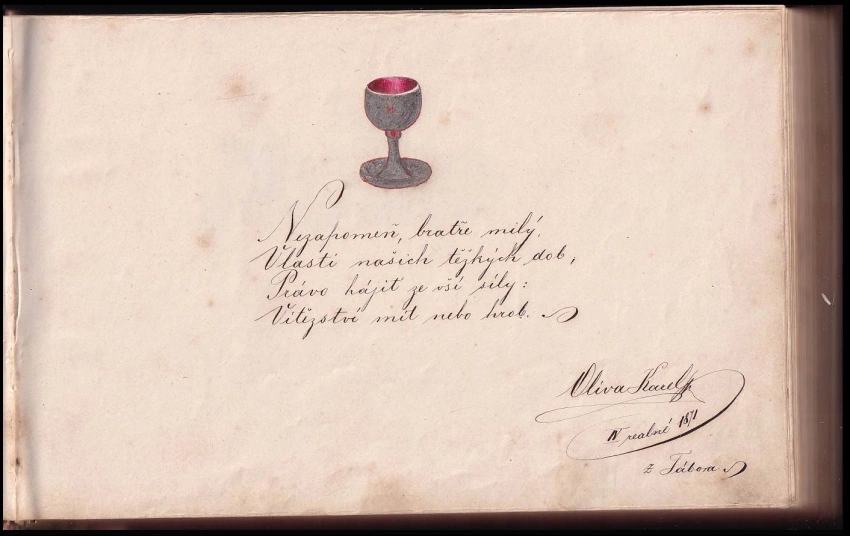 Nezapomeň, bratře milý,
Vlasti našich těžkých dob,
Právo hájit ze vší síly:
Vítězství mít nebo hrob.
Oliva Karel
IV reálné 1871
z Tábora